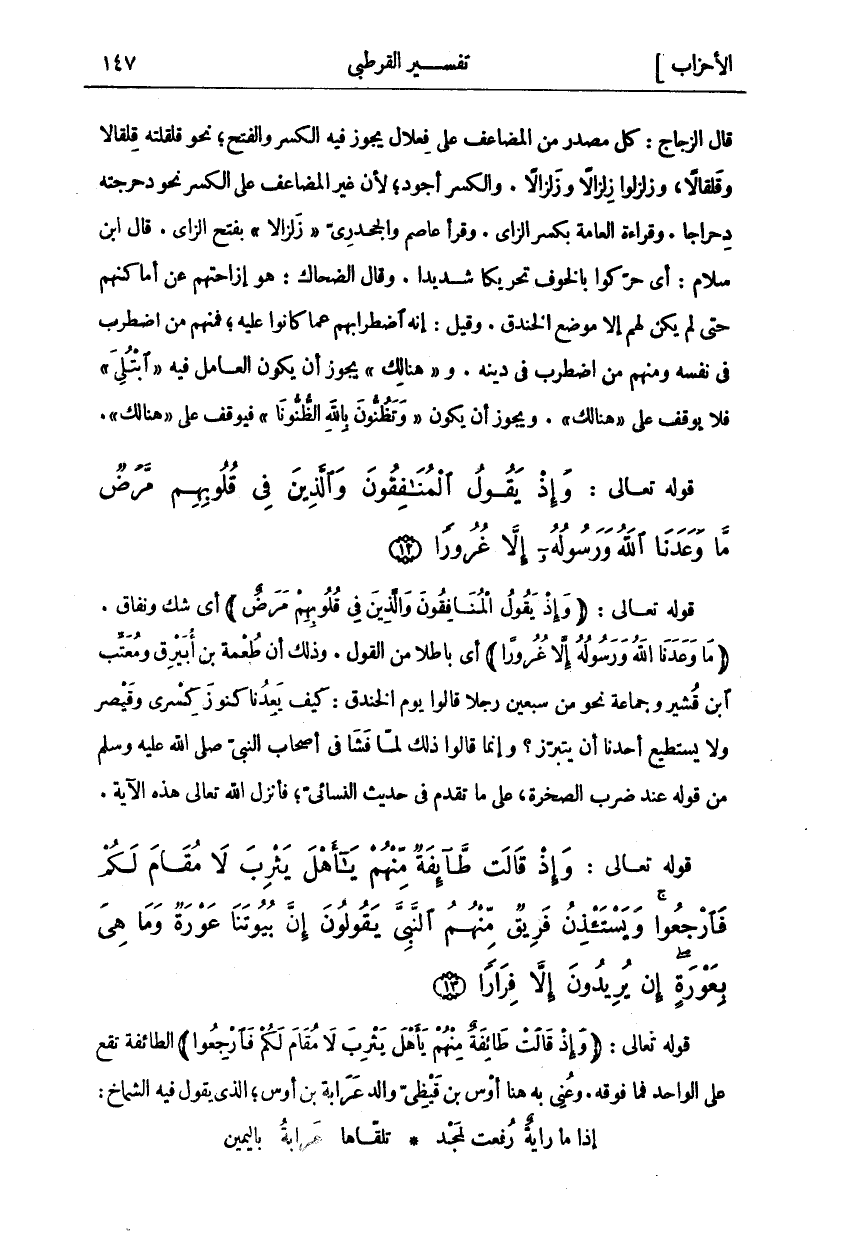 الأحزاب ] تفســير القرطبى ١٤٧
قال الزجاج : كل مصدر من المضاعف على فعلال يجوز فيه الكسر والفتح؛ نحو قلقلته قِلقالا
وقَلقالًا، وزلزلوا زِلزالًا وزَلزالًا . والكسر أجود؛ لأن غير المضاعف على الكسر نحو دحرجته
دِحراجا . وقراءة العامة بكسر الزاى . وقرأ عاصم والجحدرىّ « زَلزالا » بفتح الزاى . قال ابن
سلام : أى حرّكوا بالخوف تحريكا شـديدا . وقال الضحاك : هو إزاحتهم عن أماكنهم
حتى لم يكن لهم إلا موضع الخندق . وقيل : إنه آضطرابهم عما كانوا عليه؛ فمنهم من اضطرب
فى نفسه ومنهم من اضطرب فى دينه . و« هنالك » يجوز أن يكون العـامل فيه «آبْتُلِىَ»
فلا يوقف على «هنالك» . ويجوز أن يكون « وَتَظُنُّونَ بِاللهِ الظُّنُونَا » فيوقف على «هنالك».
قوله تعـالى : وَإِذْ يَقُـولُ ٱلْمُنَـٰفِقُونَ وَٱلَّذِينَ فِى قُلُوبِهِـم مَّرَضٌ
مَّا وَعَدَنَا ٱللَّهُ وَرَسُولُهُۥٓ إِلَّا غُرُورًا ﴿١٢﴾
قوله تعـالى : ﴿ وَإِذْ يَقُولُ الْمُنَـافِقُونَ وَالَّذِينَ فِى قُلُوبِهِمْ مَرَضٌ ﴾ أى شك ونفاق .
﴿ مَا وَعَدَنَا اللهُ وَرَسُولُهُ إِلَّا غُرُورًا ﴾ أى باطلا من القول . وذلك أن طُعْمة بن أُبَيْرِق ومُعَتِّب
آبن قُشير وجماعة نحو من سبعين رجلا قالوا يوم الخندق : كيف يَعِدُنا كنوزَ كِسْرى وقَيْصر
ولا يستطيع أحدنا أن يتبرّز ؟ وإنما قالوا ذلك لمـّا فَشَا فى أصحاب النبىّ صلى الله عليه وسلم
من قوله عند ضرب الصخرة، على ما تقدم فى حديث النسائىّ؛ فأنزل الله تعالى هذه الآية .
قوله تعـالى : وَإِذْ قَالَت طَّآئِفَةٌ مِّنْهُمْ يَـٰٓأَهْلَ يَثْرِبَ لَا مُقَـامَ لَـكُمْ
فَٱرْجِعُوا۟ ۚ وَيَسْتَـْٔذِنُ فَرِيقٌ مِّنْهُـمُ ٱلنَّبِىَّ يَقُولُونَ إِنَّ بُيُوتَنَا عَوْرَةٌ وَمَا هِىَ
بِعَوْرَةٍ ۖ إِن يُرِيدُونَ إِلَّا فِرَارًا ﴿١٣﴾
قوله تعالى : ﴿ وَإِذْ قَالَتْ طَائِفَةٌ مِنْهُمْ يَأَهْلَ يَثْرِبَ لَا مُقَامَ لَكُمْ فَٱرْجِعُوا ﴾ الطائفة تقع
على الواحد فما فوقه . وعُنِى به هنا أَوْس بن قَيْظِىّ والد عَرَابة بن أوس؛ الذى يقول فيه الشماخ :
إذا ما رايةٌ رُفعت لمجْد * تلقّـاها عَرابةُ باليمين